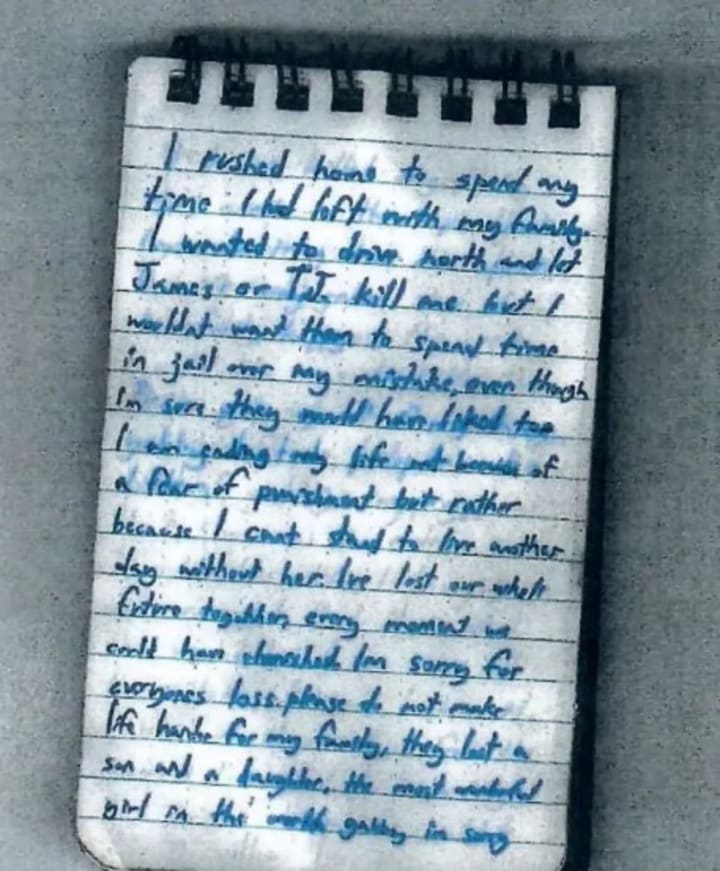 I rushed home to spend any
time I had left with my family.
I wanted to drive north and let
James or T.J. kill me but I
wouldnt want them to spend time
in jail over my mistake, even though
Im sure they would have liked too
I am ending my life not because of
a fear of punishment but rather
because I cant stand to live another
day without her. Ive lost our whole
future together, every moment we
could have cherished. Im sorry for
everyones loss. please do not make
life harder for my family, they lost a
son and a daughter, the most wonderful
girl in the world in